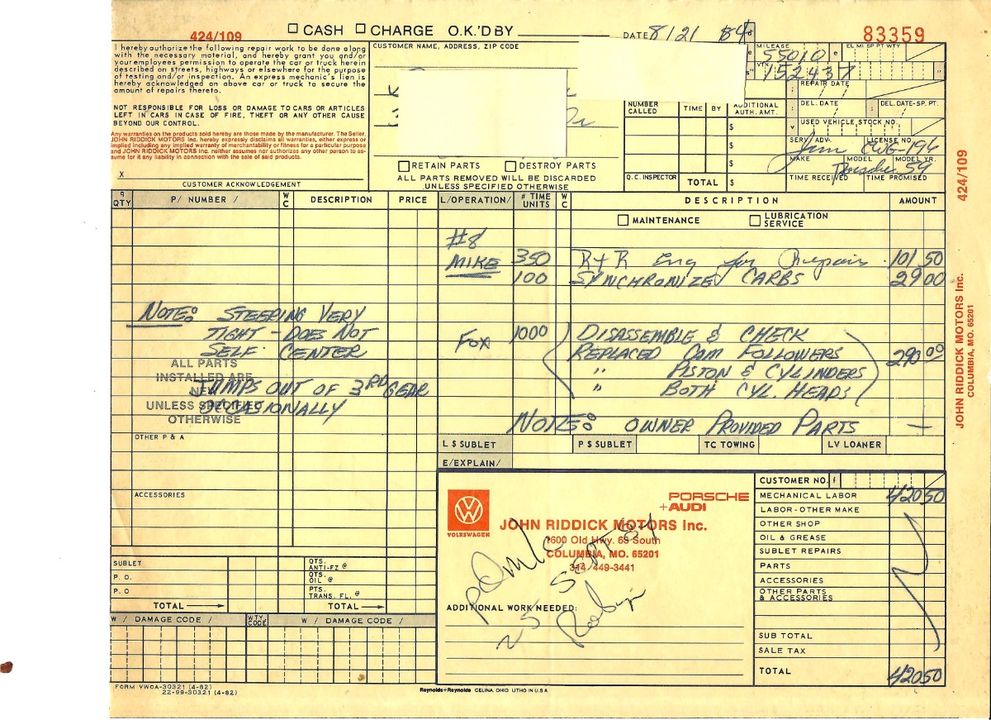 424/109
☐ CASH ☐ CHARGE O.K.'D BY
DATE 8/21 84
83359
I hereby authorize the following repair work to be done along
with the necessary material, and hereby grant you and/or
your employees permission to operate the car or truck herein
described on streets, highways or elsewhere for the purpose
of testing and/or inspection. An express mechanic's lien is
hereby acknowledged on above car or truck to secure the
amount of repairs thereto.
NOT RESPONSIBLE FOR LOSS OR DAMAGE TO CARS OR ARTICLES
LEFT IN CARS IN CASE OF FIRE, THEFT OR ANY OTHER CAUSE
BEYOND OUR CONTROL.
Any warranties on the products sold hereby are those made by the manufacturer. The Seller,
JOHN RIDDICK MOTORS Inc. hereby expressly disclaims all warranties, either express or
implied including any implied warranty of merchantability or fitness for a particular purpose
and JOHN RIDDICK MOTORS Inc. neither assumes nor authorizes any other person to as-
sume for it any liability in connection with the sale of said products.
X
CUSTOMER ACKNOWLEDGEMENT
CUSTOMER NAME, ADDRESS, ZIP CODE
☐ RETAIN PARTS ☐ DESTROY PARTS
ALL PARTS REMOVED WILL BE DISCARDED
UNLESS SPECIFIED OTHERWISE
NUMBER CALLED TIME BY ADDITIONAL AUTH. AMT.
$
$
$
Q.C. INSPECTOR TOTAL $
MILEAGE 55010
152437
REPAIR DATE
DEL. DATE DEL. DATE-SP. PT.
USED VEHICLE STOCK NO.
SERV/ADV. Jim LICENSE NO. CWG-196
MAKE Porsche MODEL MODEL YR. 59
TIME RECEIVED TIME PROMISED
QTY P/ NUMBER / W C DESCRIPTION PRICE L/OPERATION/ # TIME UNITS W C DESCRIPTION AMOUNT
☐ MAINTENANCE ☐ LUBRICATION SERVICE
#8
MIKE 350 R+R Eng for Repair 101 50
100 SYNCHRONIZE CARBS 29 00
NOTE: STEERING VERY
TIGHT - DOES NOT
SELF CENTER
JUMPS OUT OF 3RD GEAR
OCCASIONALLY
ALL PARTS
INSTALLED ARE
NEW
UNLESS SPECIFIED
OTHERWISE
FOX 1000 DISASSEMBLE & CHECK
REPLACED CAM FOLLOWERS 290 00
" PISTON & CYLINDERS
" BOTH CYL. HEADS
NOTE: OWNER PROVIDED PARTS —
OTHER P & A
ACCESSORIES
L S SUBLET P S SUBLET TC TOWING LV LOANER
E/EXPLAIN/
VOLKSWAGEN
PORSCHE
+AUDI
JOHN RIDDICK MOTORS Inc.
1600 Old Hwy. 63 South
COLUMBIA, MO. 65201
314/449-3441
ADDITIONAL WORK NEEDED:
25 Sept 84
CUSTOMER NO.
MECHANICAL LABOR 420 50
LABOR - OTHER MAKE
OTHER SHOP
OIL & GREASE
SUBLET REPAIRS
PARTS
ACCESSORIES
OTHER PARTS
& ACCESSORIES
SUB TOTAL
SALE TAX
TOTAL 420 50
SUBLET
P. O.
P. O
TOTAL
QTS. ANTI-FZ @
QTS. OIL @
PTS. TRANS. FL. @
TOTAL
W / DAMAGE CODE / WTY. CODE W / DAMAGE CODE /
FORM VWOA-30321 (4-82)
22-99-30321 (4-82)
Reynolds+Reynolds CELINA, OHIO LITHO IN U.S.A
424/109
JOHN RIDDICK MOTORS Inc.
COLUMBIA, MO. 65201